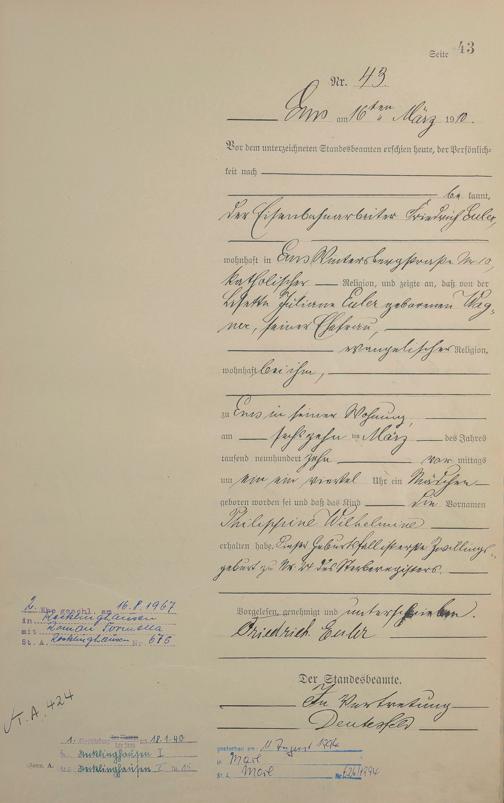 Seite 43
Nr. 43
Ems am 16ten März 1910.
Vor dem unterzeichneten Standesbeamten erschien heute, der Persönlich-
keit nach
be kannt,
der Eisenbahnarbeiter Friedrich Euler,
wohnhaft in Ems Wintersbergstraße Nr 10,
katholischer Religion, und zeigte an, daß von der
Lisette Juliane Euler geborenen Wag-
ner, seiner Ehefrau,
evangelischer Religion,
wohnhaft bei ihm,
zu Ems in seiner Wohnung,
am sechszehn ten März des Jahres
tausend neunhundert zehn vor mittags
um ein ein viertel Uhr ein Mädchen
geboren worden sei und daß das Kind die Vornamen
Philippine Wilhelmine
erhalten habe. Dieser Geburtsfall ist erste Zwillings-
geburt zu Nr. 21 des Sterberegisters.
Vorgelesen, genehmigt und unterschrieben.
Friedrich Euler
Der Standesbeamte.
In Vertretung
2. Ehe geschl. am 16.8.1967
in Recklinghausen
mit Roman
St. A. Recklinghausen Nr. 675
A. 424
1. am 18.1.40
Recklinghausen I
Recklinghausen I
gestorben am: 11 August 1994
in Marl
St. A. Marl Nr. /1994